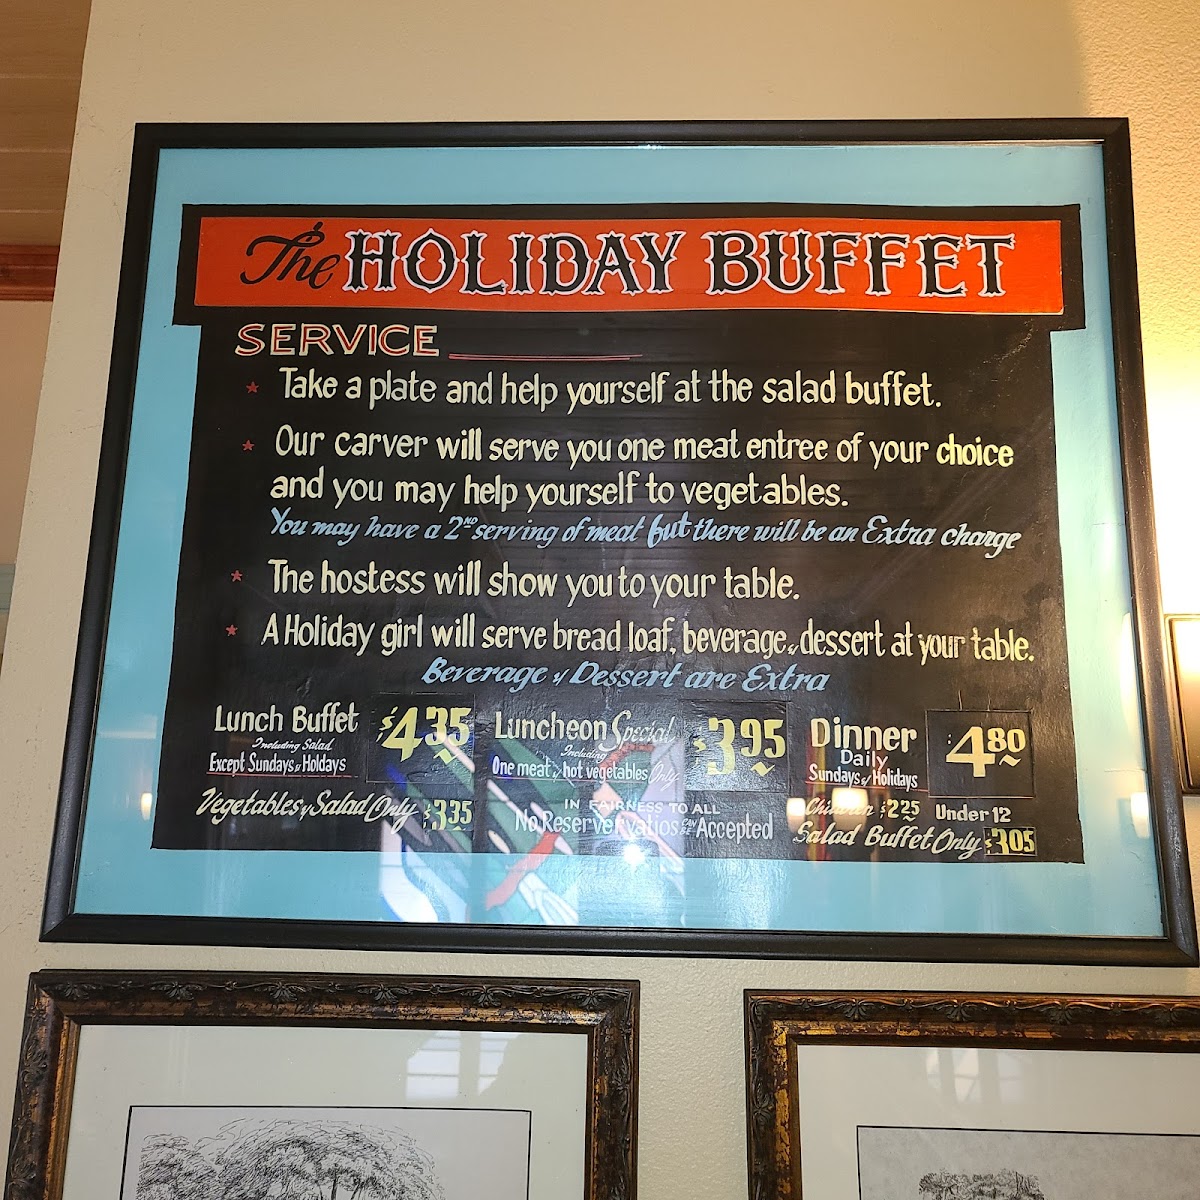 The HOLIDAY BUFFET
SERVICE
Take a plate and help yourself at the salad buffet.
Our carver will serve you one meat entree of your choice
and you may help yourself to vegetables.
You may have a 2ND serving of meat but there will be an Extra charge
The hostess will show you to your table.
A Holiday girl will serve bread loaf, beverage, & dessert at your table.
Beverage & Dessert are Extra
Lunch Buffet
Including Salad
Except Sundays & Holdays
$4.35
Luncheon Special
Including
One meat & hot vegetables Only
$3.95
Dinner
Daily
Sundays & Holidays
$4.80
Vegetables & Salad Only $3.35
IN FAIRNESS TO ALL
No Reserver vatios CAN BE Accepted
Children $2.25 Under 12
Salad Buffet Only $3.05